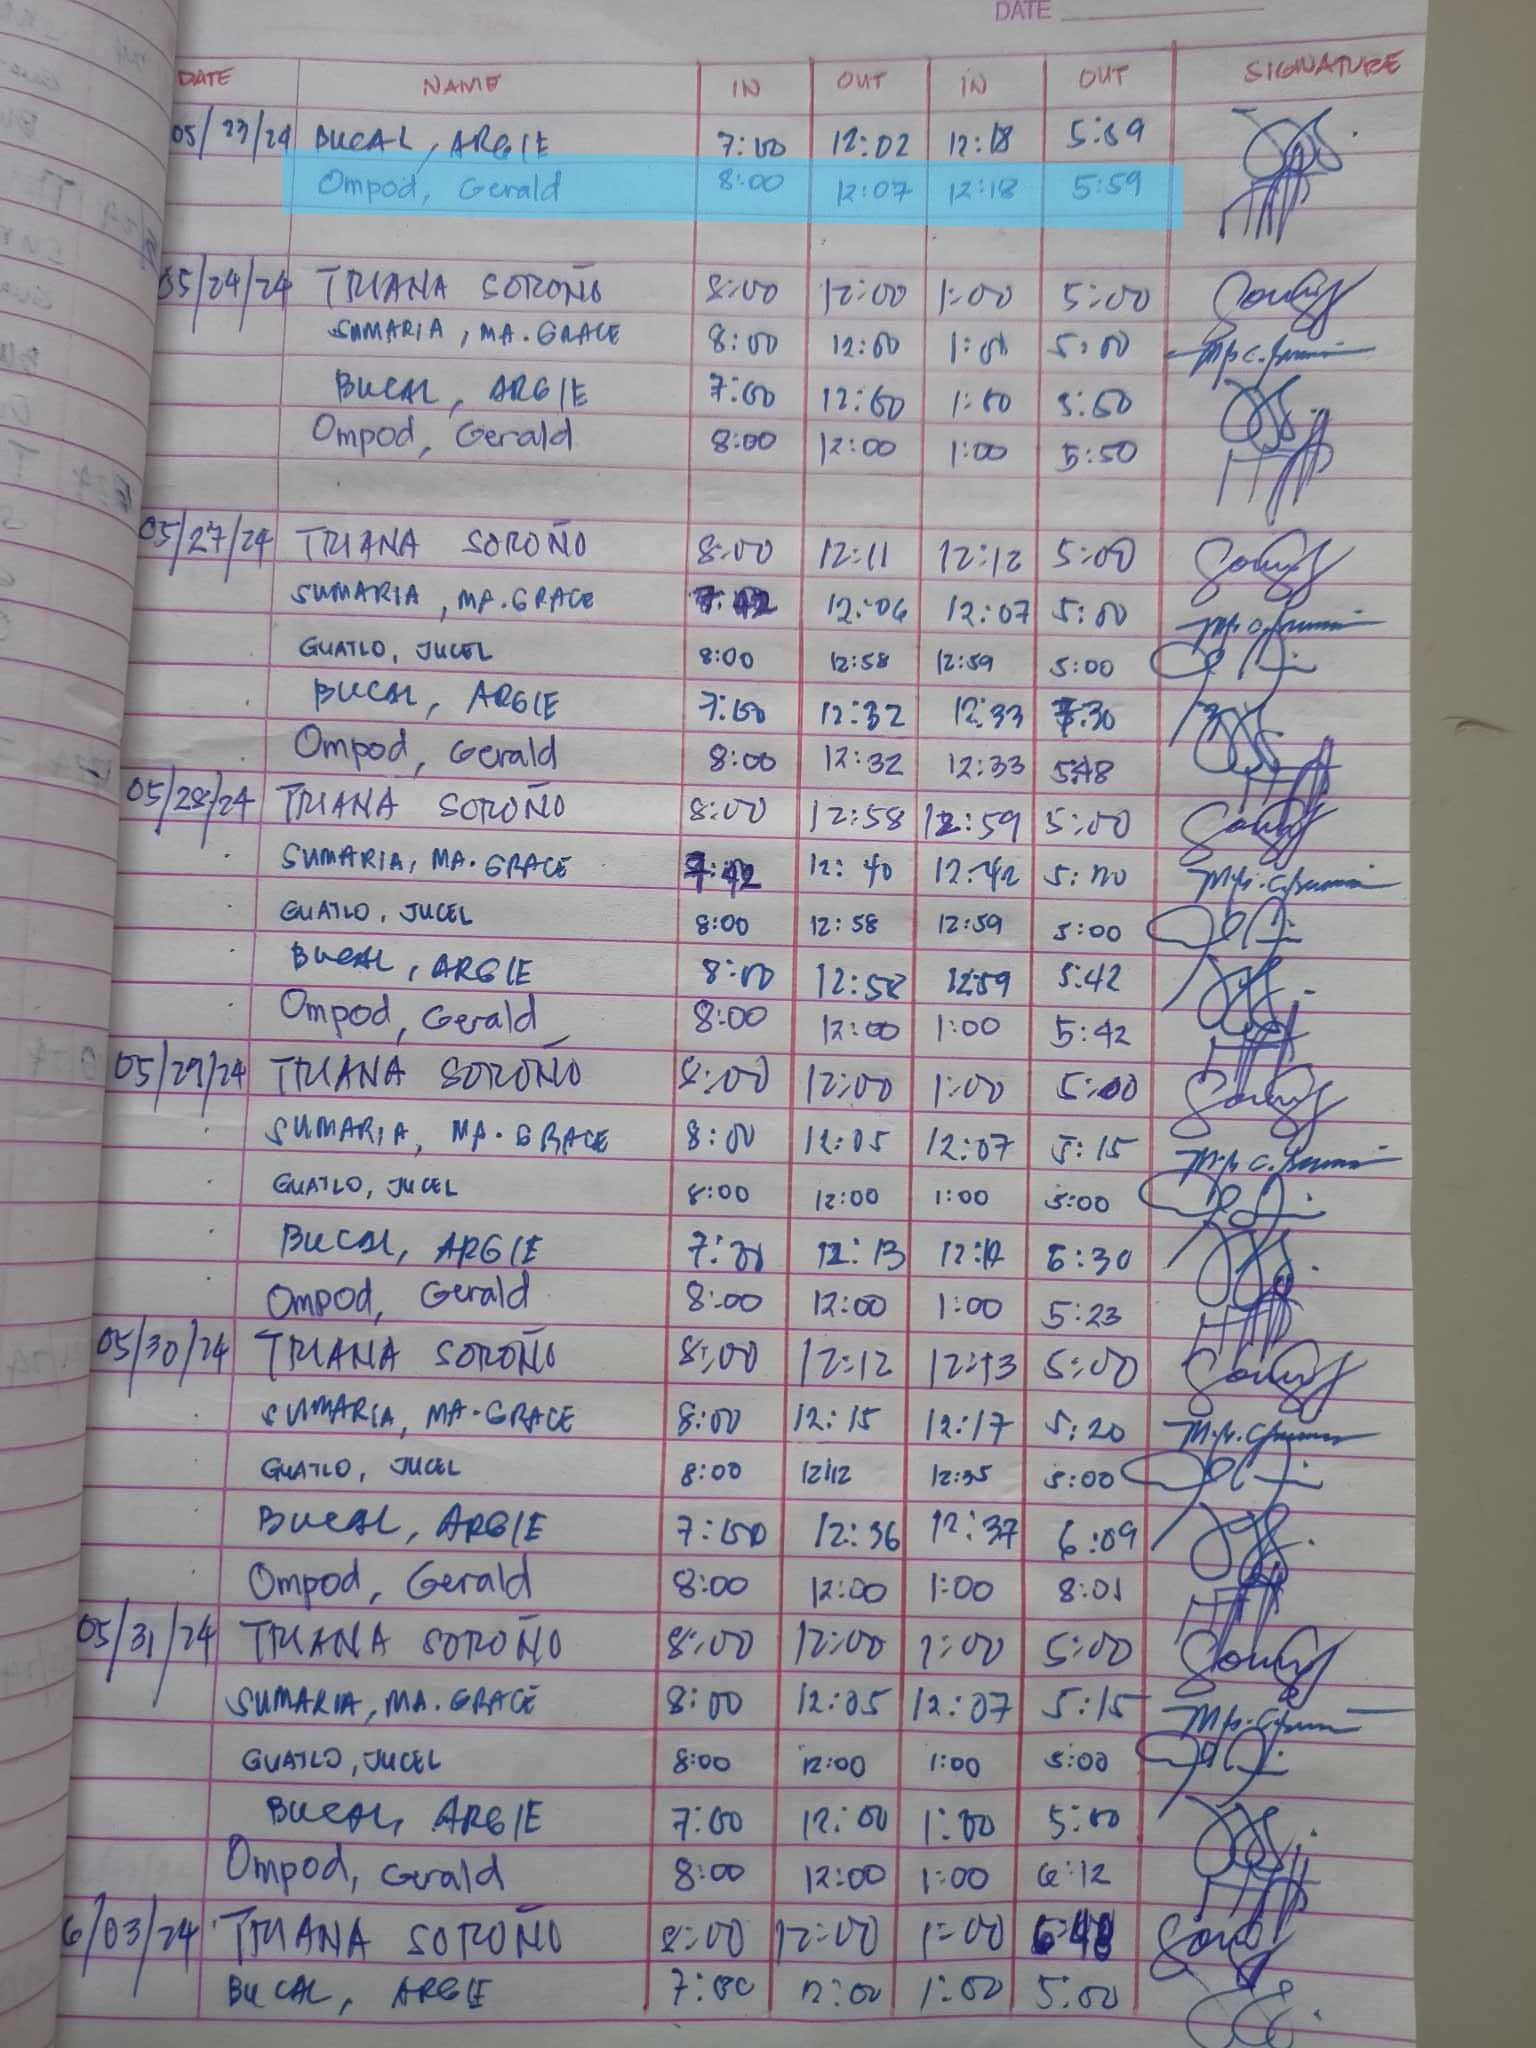 DATE
DATE NAME IN OUT IN OUT SIGNATURE
05/23/24 BUCAL, ARGIE 7:00 12:02 12:18 5:59
Ompod, Gerald 8:00 12:07 12:18 5:59
05/24/24 TRIANA SOROÑO 8:00 12:00 1:00 5:00
SUMARIA, MA. GRACE 8:00 12:00 1:00 5:00
BUCAL, ARGIE 7:00 12:00 1:00 5:00
Ompod, Gerald 8:00 12:00 1:00 5:50
05/27/24 TRIANA SOROÑO 8:00 12:11 12:12 5:00
SUMARIA, MA. GRACE 7:42 12:06 12:07 5:00
GUATLO, JUCEL 8:00 12:58 12:59 5:00
BUCAL, ARGIE 7:00 12:32 12:33 :30
Ompod, Gerald 8:00 12:32 12:33 5:48
05/28/24 TRIANA SOROÑO 8:00 12:58 12:59 5:00
SUMARIA, MA. GRACE 7:42 12:40 12:42 5:00
GUATLO, JUCEL 8:00 12:58 12:59 5:00
BUCAL, ARGIE 8:00 12:58 12:59 5:42
Ompod, Gerald 8:00 12:00 1:00 5:42
05/29/24 TRIANA SOROÑO 8:00 12:00 1:00 5:00
SUMARIA, MA. GRACE 8:00 12:05 12:07 5:15
GUATLO, JUCEL 8:00 12:00 1:00 5:00
BUCAL, ARGIE 12:13 6:30
Ompod, Gerald 8:00 12:00 1:00 5:23
05/30/24 TRIANA SOROÑO 8:00 12:12 12:13 5:00
SUMARIA, MA. GRACE 8:00 12:15 12:17 5:20
GUATLO, JUCEL 8:00 12:12 12:35 5:00
BUCAL, ARGIE 7:00 12:36 12:37 6:09
Ompod, Gerald 8:00 12:00 1:00 8:01
05/31/24 TRIANA SOROÑO 8:00 12:00 1:00 5:00
SUMARIA, MA. GRACE 8:00 12:05 12:07 5:15
GUATLO, JUCEL 8:00 12:00 1:00 5:00
BUCAL, ARGIE 7:00 12:00 1:00 5:00
Ompod, Gerald 8:00 12:00 1:00 6:12
6/03/24 TRIANA SOROÑO 8:00 12:00 1:00
BUCAL, ARGIE 7:00 12:00 1:00 5:00